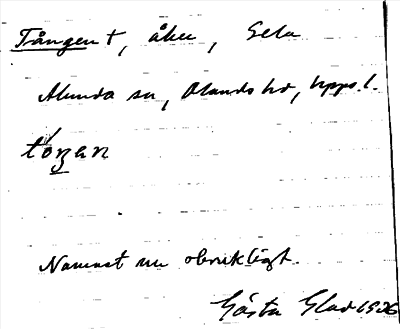 Tången t, åker, Gela
Alunda sn, Olands hd, Upps. l.
tóŋan
Namnet nu obrukligt.
Gösta Glad 1926